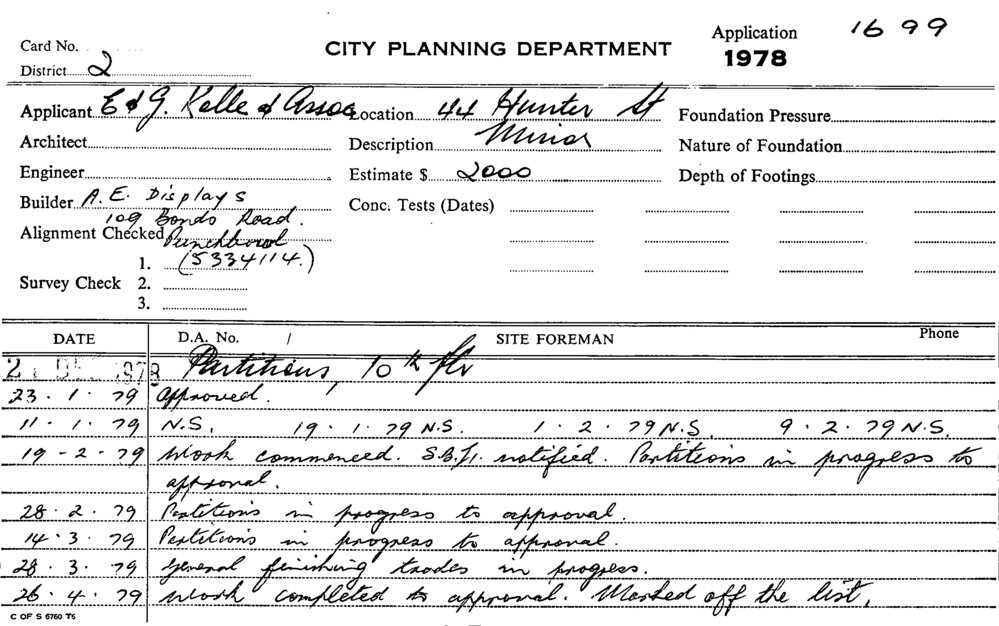 Application 1699
Card No.
CITY PLANNING DEPARTMENT
1978
District 2
Applicant E & G. Kelle & Assoc Location 44 Hunter St Foundation Pressure
Architect Description Minor Nature of Foundation
Engineer Estimate $ 2000 Depth of Footings
Builder A. E. Displays Conc. Tests (Dates)
109 Bonds Road.
Alignment Checked Punchbowl
1. (5334114.)
Survey Check 2.
3.
DATE D.A. No. / SITE FOREMAN Phone
2 DEC 1978 Partitions, 10th flr
23.1.79 approved.
11.1.79 N.S. 19.1.79 N.S. 1.2.79 N.S. 9.2.79 N.S.
19-2.79 Work commenced. S.B.I. notified. Partitions in progress to
approval.
28.2.79 Partitions in progress to approval.
14.3.79 Partitions in progress to approval.
28.3.79 General finishing trades in progress.
26.4.79 Work completed to approval. Marked off the list.
C OF S 6760 T6